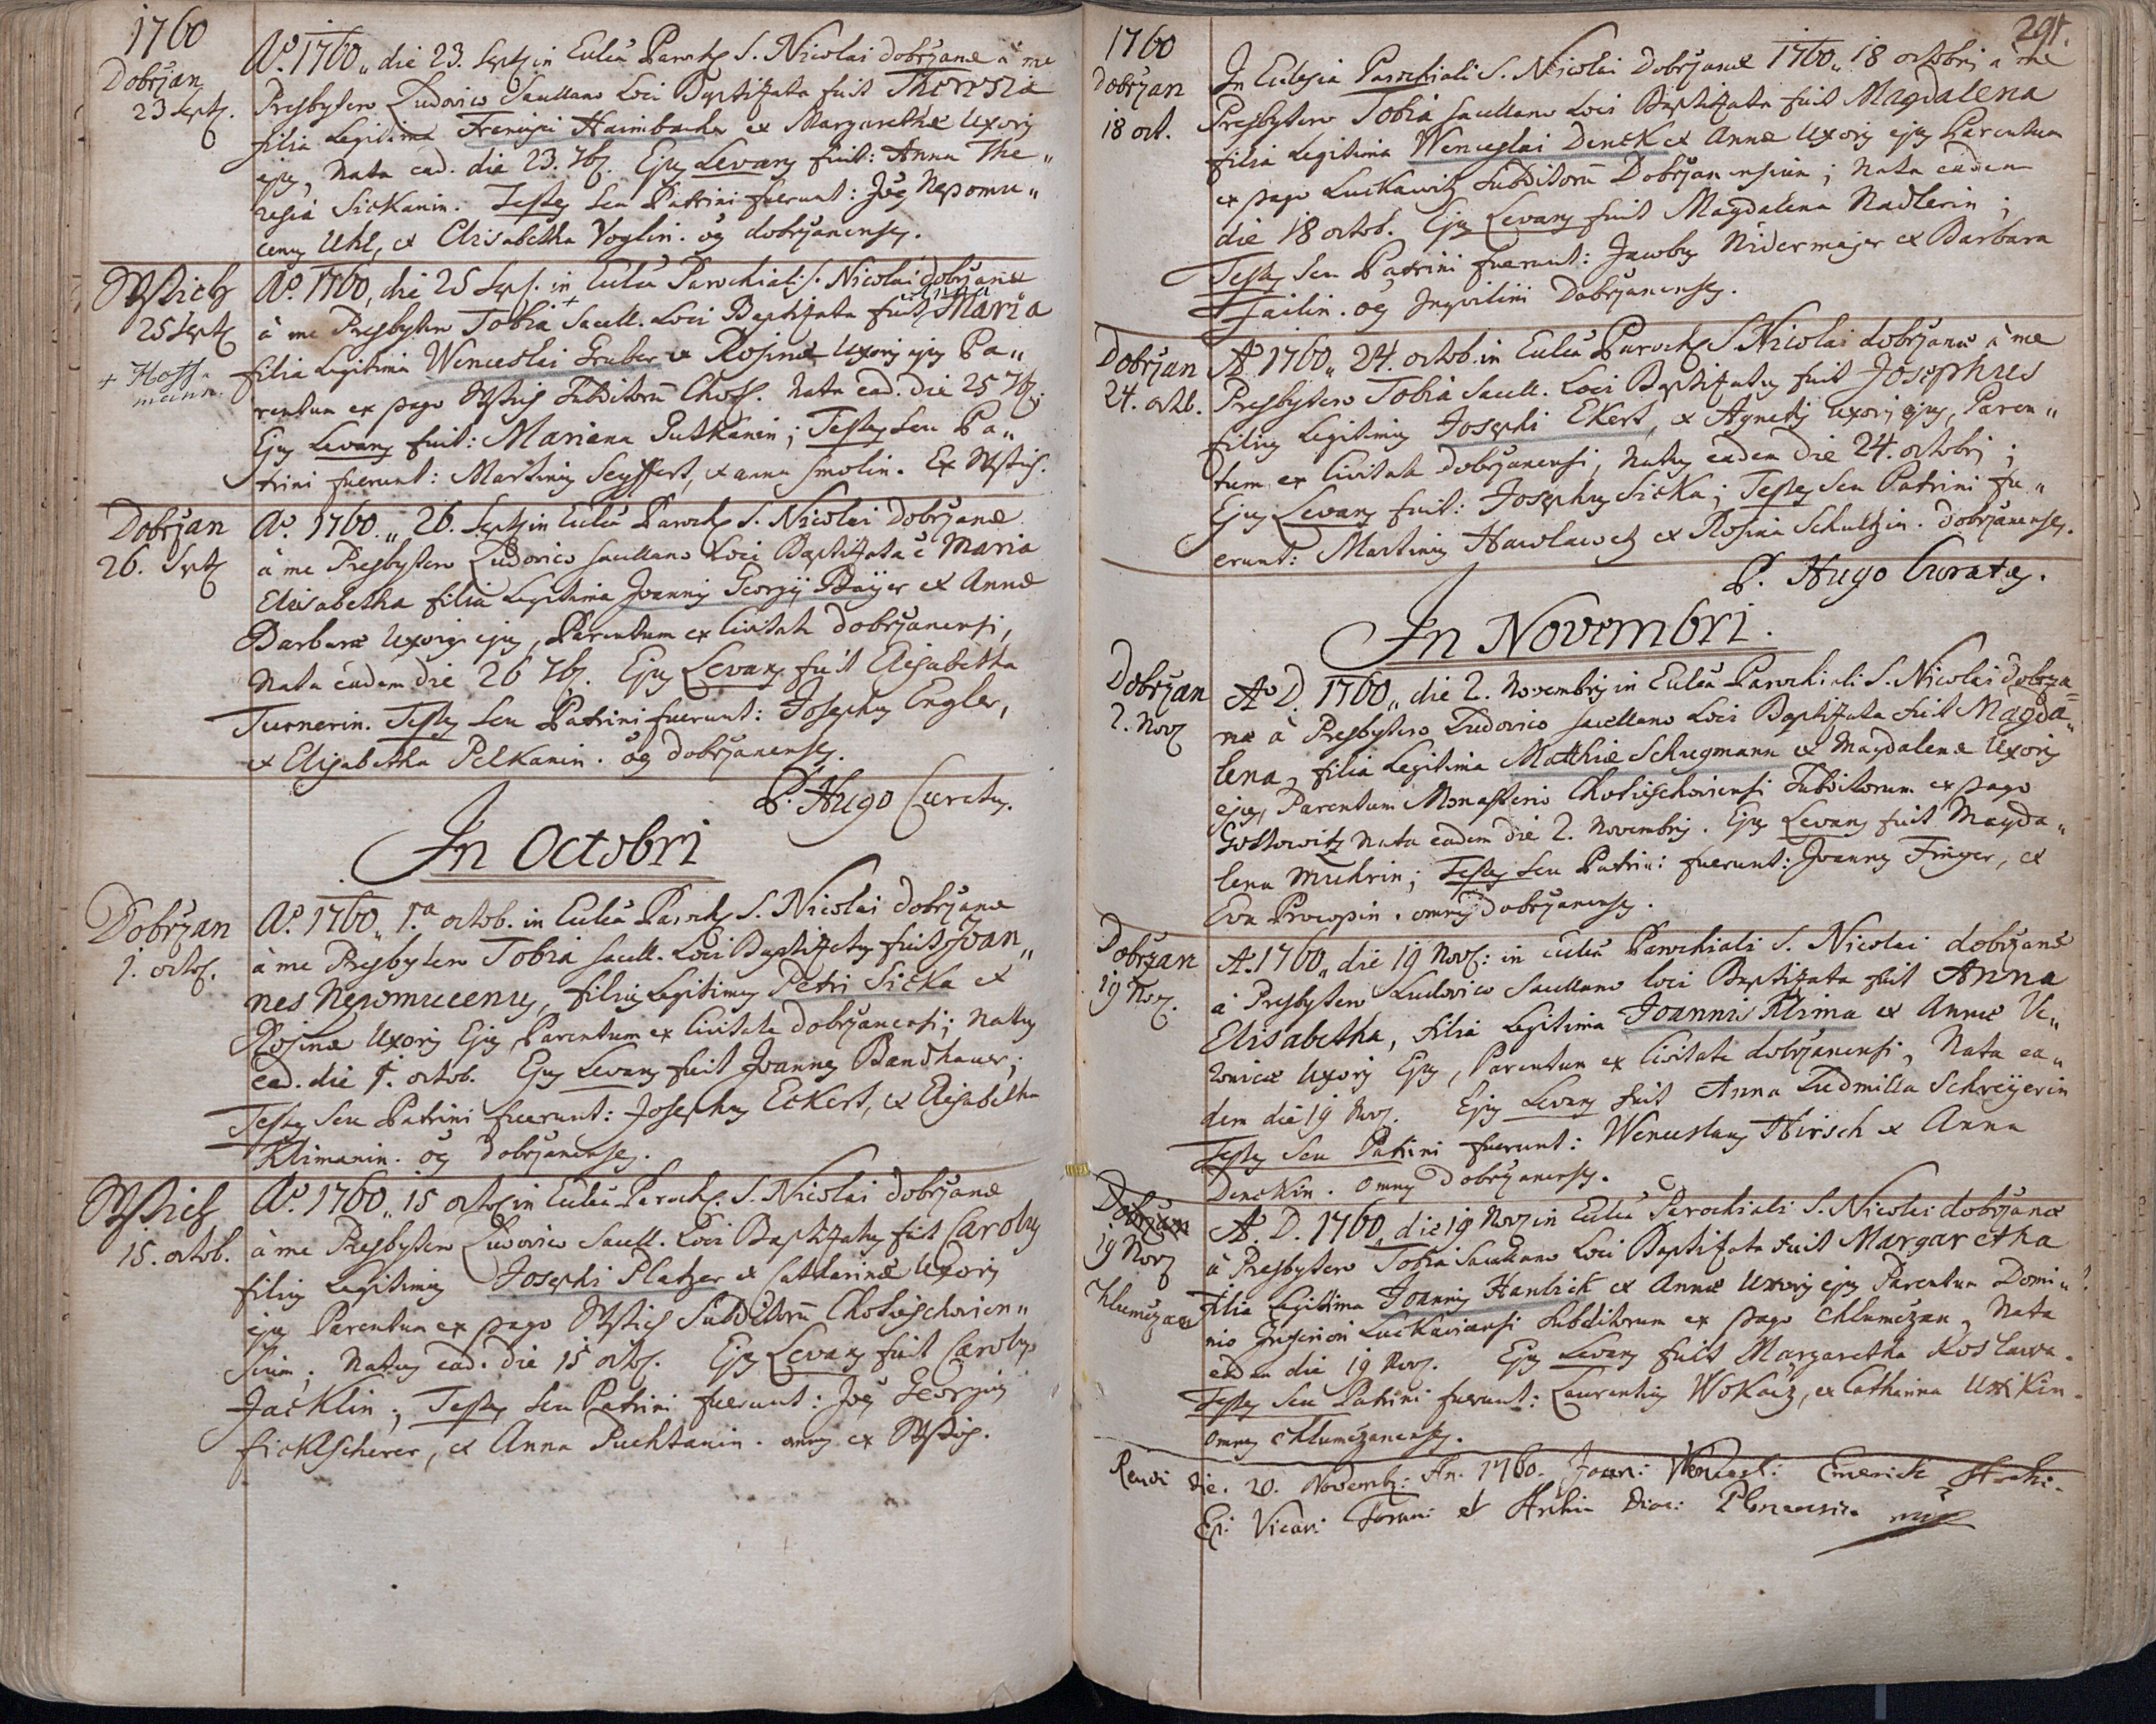 1760
Dobrzan
23 Sept.
A.o 1760,, die 23. Sept. in Eccl̄ia Paroch. S. Nicolai Dobrzanæ à me
Presbytero Ludovico Sacellano Loci Baptizata fuit Theresia
filia Legitima Francisci Haimbacher et Margarethæ Uxoris
ejus, Nata ead. die 23. 7bris. Ejus Levans fuit: Anna The„
resia Sickanin. Testes seu Patrini fuerunt: Joēs Nepomu„
cenus Uhl, et Elisabetha Voglin. oēs dobrzanenses.
Wstich
25 Sept
+ Hoff-
mann.
A.o 1760, die 25 Sept. in Eccl̄ia Parochiali S. Nicolai dobrzanæ
à me Presbytero Tobia + Sacell. Loci Baptizata fuit Anna Maria
filia Legitima Wenceslai Gruber et Rosinæ Uxoris ejus Pa„
rentum ex pago Wstich Subditorum Chot. Nata ead. die 25 7bris.
Ejus Levans fuit: Mariana Putkanin; Testes seu Pa„
trini fuerunt: Martinus Seyffert, et anna Smolin. Ex Wstich.
Dobrzan
26. Sept
A.o 1760.,, 26. Sept. in Eccl̄ia Paroch. S. Nicolai Dobrzanæ
à me Presbytero Ludovico Sacellano Loci Baptizata ē Maria
Elisabetha filia Legitima Joannis Georgij Bayer et Annæ
Barbaræ Uxoris ejus, Parentum ex Civitate dobrzanensi,
Nata eadem die 26 7bris. Ejus Levans fuit Elisabetha
Turnerin. Testes seu Patrini fuerunt: Josephus Engler,
et Elisabetha Pelkanin. oēs dobrzanenses.
P. Hugo Curatus.
In Octobri
Dobrzan
1. octob.
A.o 1760,, 1.a octob. in Eccl̄ia Paroch. S. Nicolai dobrzanæ
à me Presbytero Tobia Sacell. Loci Baptizatus fuit Joan„
nes Nepomucenus, filius Legitimus Petri Sicka et
Rosinæ Uxoris Ejus Parentum ex Civitate dobrzanensi; Natus
ead. die 1. octob. Ejus Levans fuit Joannes Bandhauer;
Testes seu Patrini fuerunt: Josephus Eckert, et Elisabetha
Klimanin. oēs dobrzanenses.
Wstich
15. octob.
A.o 1760,, 15 octob. in Eccl̄ia Paroch. S. Nicolai dobrzanæ
à me Presbytero Ludovico Sacell. Loci Baptizatus fuit Carolus
filius Legitimus Josephi Platzer et Catharinæ Uxoris
ejus Parentum ex pago Wstich Subditorum Chotieschovien„
sium; Natus ead. die 15 octob. Ejus Levans fuit Carolus
Jacklin; Testes seu Patrini fuerunt: Joēs Georgius
Ficklscherer, et Anna Puchtanin. omnes ex Wstich.
291.
1760
Dobrzan
18 oct.
In Eclesia Parochiali S. Nicolai Dobrzanæ 1760,, 18 octobris a me
Presbytero Tobia Sacellano Loci Baptizata fuit Magdalena
filia Legitima Wenceslai Denck et Annæ Uxoris ejus Parentum
ex pago Luckawitz Subditorum Dobrzanensium; Nata eadem
die 18 octob. Ejus Levans fuit Magdalena Nadlerin;
Testes seu Patrini fuerunt: Jacobus Nidermajer et Barbara
Failin. oēs Inquilini Dobrzanenses.
Dobrzan
24. octob.
A.o 1760,, 24. octob. in Eccl̄ia Paroch. S Nicolai dobrzanæ à me
Presbytero Tobia Sacell. Loci Baptizatus fuit Josephus
filius Legitimus Josephi Ekert, et Agnetis uxoris ejus, Paren„
tum ex Civitate dobrzanensi, Natus eadem die 24. octobris;
Ejus Levans fuit: Josephus Sicka; Testes seu Patrini fu„
erunt: Martinus Hawlawetz et Rosina Schultzin. dobrzanenses.
P. Hugo Curatus.
In Novembri.
Dobrzan
2. Nov
A.o D. 1760,, die 2. Novembris in Eccl̄ia Parochiali S. Nicolai Dobrza„
næ à Presbytero Ludovico Sacellano Loci Baptizata fuit Magda„
lena, filia Legitima Matthiæ Schugmann et Magdalenæ Uxoris
ejus, Parentum Monasterio Chotieschoviensi Subditorum ex pago
Gottowitz Nata eadem die 2. Novembris. Ejus Levans fuit Magda„
lena Muhrin; Testes seu Patrini fuerunt: Joannes Finger, et
Eva Procopin. omnes Dobrzanenses.
Dobrzan
19 Nov.
A. 1760,, die 19 Nov: in Eccl̄ia Parochiali S. Nicolai dobrzanæ
à Presbytero Ludovico Sacellano loci Baptizata fuit Anna
Elisabetha, filia Legitima Joannis Klima et Annæ Ve„
ronicæ Uxoris Ejus, Parentum ex Civitate dobrzanensi, Nata ea„
dem die 19 Nov. Ejus Levans fuit Anna Ludmilla Schreÿerin
Testes seu Patrini fuerunt: Wenceslaus Hirsch et Anna
Denckin. omnes Dobrzanenses.
Dobrzan
19 Nov
Khlumczan
A. D. 1760, die 19 Nov. in Eccl̄ia Parochiali S. Nicolai dobrzanæ
à Presbytero Tobia Sacellano Loci Baptizata fuit Margaretha
filia Legitima Joannis Hanlick et Annæ Uxoris ejus Parentum Domi„
nio Inferiori Luckaviensi subditorum ex pago Chlumczan, Nata
eadem die 19 Nov. Ejus Levans fuit Margaretha Koslawa.
Testes seu Patrini fuerunt: Laurentius Wokacz, et Catharina
omnes Chlumczanenses.
die. 20. Novemb: An. 1760. Joan: Wencesl:
Vicari Foran: et Archi Diac: